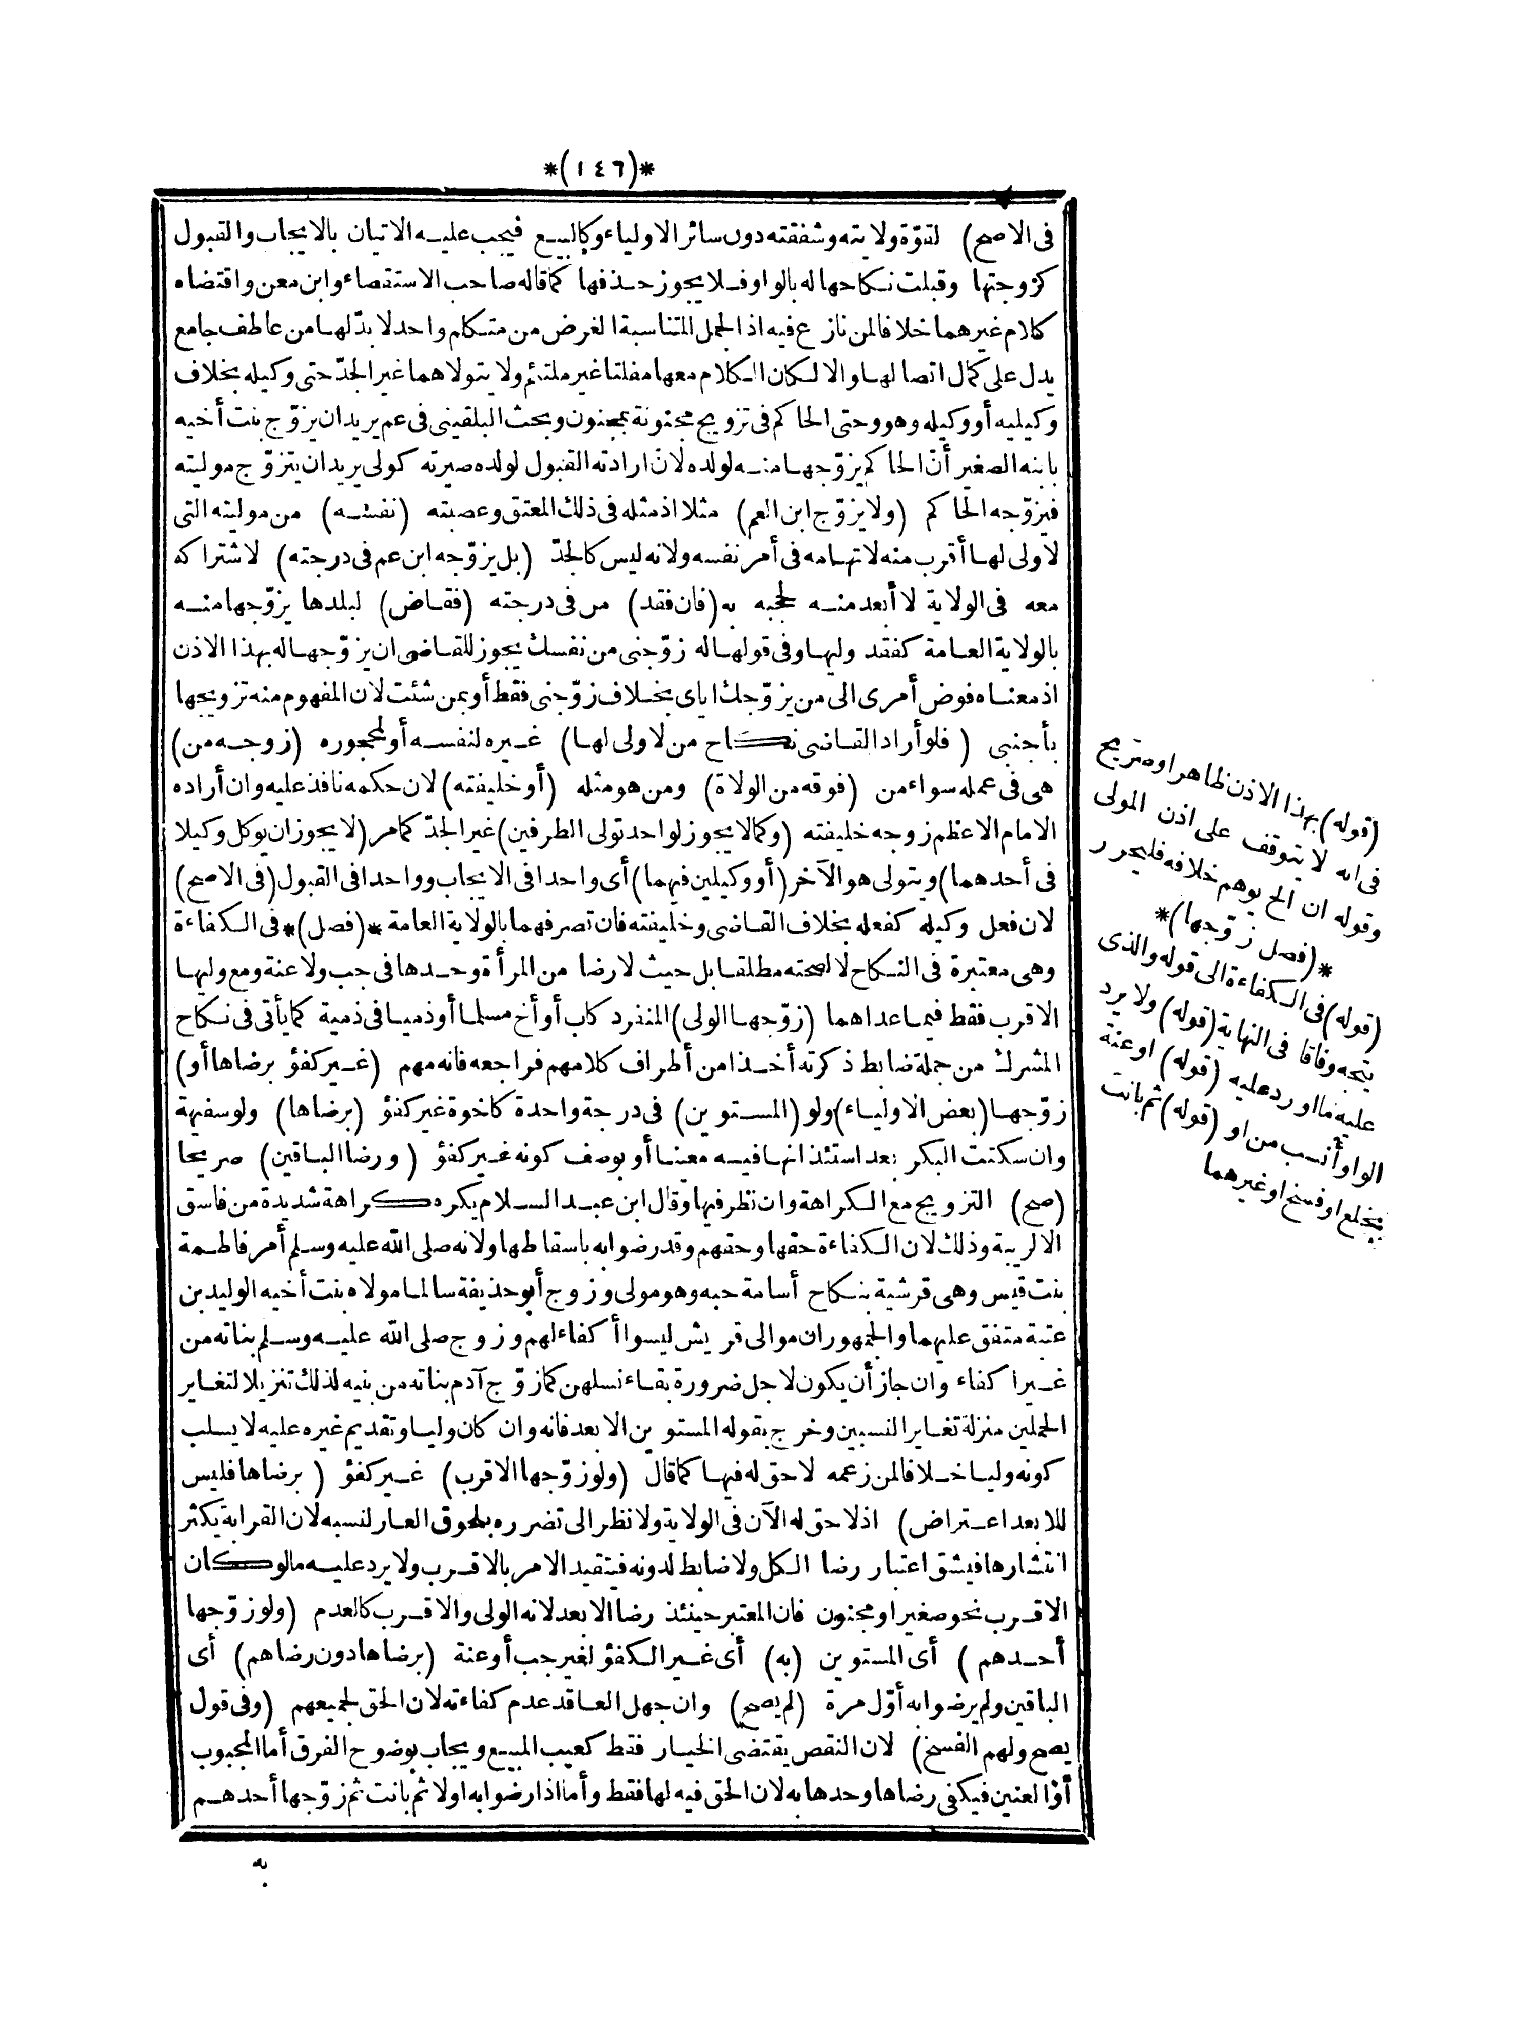 *(١٤٦)*
فى الاصح) لقوّة ولايته وشفقته دون سائر الاولياء وكالبيع فيجب عليه الاتيان بالايجاب والقبول
كزوجتها وقبلت نكاحها له بالواو فلا يجوز حذفها كما قاله صاحب الاستقصاء وابن معن واقتضاه
كلام غيرهما خلافا لمن نازع فيه اذ الجمل المتناسبة الغرض من متكلم واحد لا بدّ لها من عاطف جامع
يدل على كمال اتصالها والا لكان الكلام معها مفلتا غير ملتئم ولا يتولاهما غير الجدّ حتى وكيله بخلاف
وكيليه أو وكيله وهو وحتى الحاكم فى تزويج مجنونة بمجنون وبحث البلقينى فى عم يريد ان يزوّج بنت أخيه
بابنه الصغير أنّ الحاكم يزوّجها منه لولده لانّ ارادته القبول لولده صيرته كولى يريد ان يتزوّج موليته
فيزوّجه الحاكم (ولا يزوّج ابن العم) مثلا اذ مثله فى ذلك المعتق وعصبته (نفسه) من موليته التى
لا ولى لها أقرب منه لاتهامه فى أمر نفسه ولانه ليس كالجدّ (بل يزوّجه ابن عم فى درجته) لاشتراكه
معه فى الولاية لا أبعد منه لحجبه به (فان فقد) من فى درجته (فقاض) لبلدها يزوّجها منه
بالولاية العامة كفقد وليها وفى قولها له زوّجنى من نفسك يجوز للقاضى ان يزوّجها له بهذا الاذن
اذ معناه فوض أمرى الى من يزوّجك اياى بخلاف زوّجنى فقط أو بمن شئت لان المفهوم منه تزويجها
بأجنبى (فلو أراد القاضى نكاح من لا ولى لها) غيره لنفسه أو لمحجوره (زوجه من)
هى فى عمله سواء من (فوقه من الولاة) ومن هو مثله (أو خليفته) لان حكمه نافذ عليه وان أراده
الامام الاعظم زوجه خليفته (وكما لا يجوز لواحد تولى الطرفين) غير الجدّ كما مر (لا يجوز ان يوكل وكيلا
فى أحدهما) ويتولى هو الآخر (أو وكيلين فيهما) أى واحدا فى الايجاب وواحدا فى القبول (فى الاصح)
لان فعل وكيله كفعله بخلاف القاضى وخليفته فان تصرفهما بالولاية العامة *(فصل)* فى الكفاءة
وهى معتبرة فى النكاح لا لصحته مطلقا بل حيث لا رضا من المرأة وحدها فى جب ولا عنة ومع وليها
الاقرب فقط فيما عداهما (زوّجها الولى) المنفرد كاب أو أخ مسلما أو ذميا فى ذمية كما يأتى فى نكاح
المشرك من جملة ضابط ذكرته أخذا من أطراف كلامهم فراجعه فانه مهم (غير كفؤ برضاها أو)
زوّجها (بعض الاولياء) ولو (المستوين) فى درجة واحدة كاخوة غير كفؤ (برضاها) ولو سفيهة
وان سكتت البكر بعد استئذانها فيه معينا أو بوصف كونه غير كفؤ (ورضا الباقين) صريحا
(صح) التزويج مع الكراهة وان نظر فيها وقال ابن عبد السلام يكره كراهة شديدة من فاسق
الا لريبة وذلك لان الكفاءة حقها وحقهم وقد رضوا به باسقاطها ولانه صلى الله عليه وسلم أمر فاطمة
بنت قيس وهى قرشية بنكاح أسامة حبه وهو مولى وزوج أبو حذيفة سالما مولاه بنت أخيه الوليد بن
عتبة متفق عليهما والجمهور ان موالى قريش ليسوا أكفاء لهم وزوج صلى الله عليه وسلم بناته من
غير اكفاء وان جاز أن يكون لاجل ضرورة بقاء نسلهن كما زوّج آدم بناته من بنيه لذلك تنزيلا لتغاير
الحملين منزلة تغاير النسبين وخرج بقوله المستوين الابعد فانه وان كان وليا وتقديم غيره عليه لا يسلب
كونه وليا خلافا لمن زعمه لا حق له فيها كما قال (ولو زوّجها الاقرب) غير كفؤ (برضاها فليس
للابعد اعتراض) اذ لا حق له الآن فى الولاية ولا نظر الى تضرره بلحوق العار لنسبه لان القرابة يكثر
انتشارها فيشق اعتبار رضا الكل ولا ضابط لدونه فيتقيد الامر بالاقرب ولا يرد عليه ما لو كان
الاقرب نحو صغير او مجنون فان المعتبر حينئذ رضا الابعد لانه الولى والاقرب كالعدم (ولو زوّجها
أحدهم) أى المستوين (به) أى غير الكفؤ لغير جب أو عنة (برضاها دون رضاهم) أى
الباقين ولم يرضوا به أوّل مرة (لم يصح) وان جهل العاقد عدم كفاءته لان الحق لجميعهم (وفى قول
يصح ولهم الفسخ) لان النقص يقتضى الخيار فقط كعيب المبيع ويجاب بوضوح الفرق أما المجبوب
أو العنين فيكفى رضاها وحدها به لان الحق فيه لها فقط وأما اذا رضوا به اولا ثم بانت ثم زوّجها أحدهم
به
(قوله) بهذا الاذن ظاهره او صريح
فى انه لا يتوقف على اذن المولى
وقوله ان الخ يوهم خلافه فليحرر
*(فصل زوّجها)*
(قوله) فى الكفاءة الى قوله والذى
يتجه وفاقا فى النهاية (قوله) ولا يرد
عليه ما اورد عليه (قوله) او عنة
الواو أنسب من او (قوله) ثم بانت
بخلع او فسخ او غيرهما